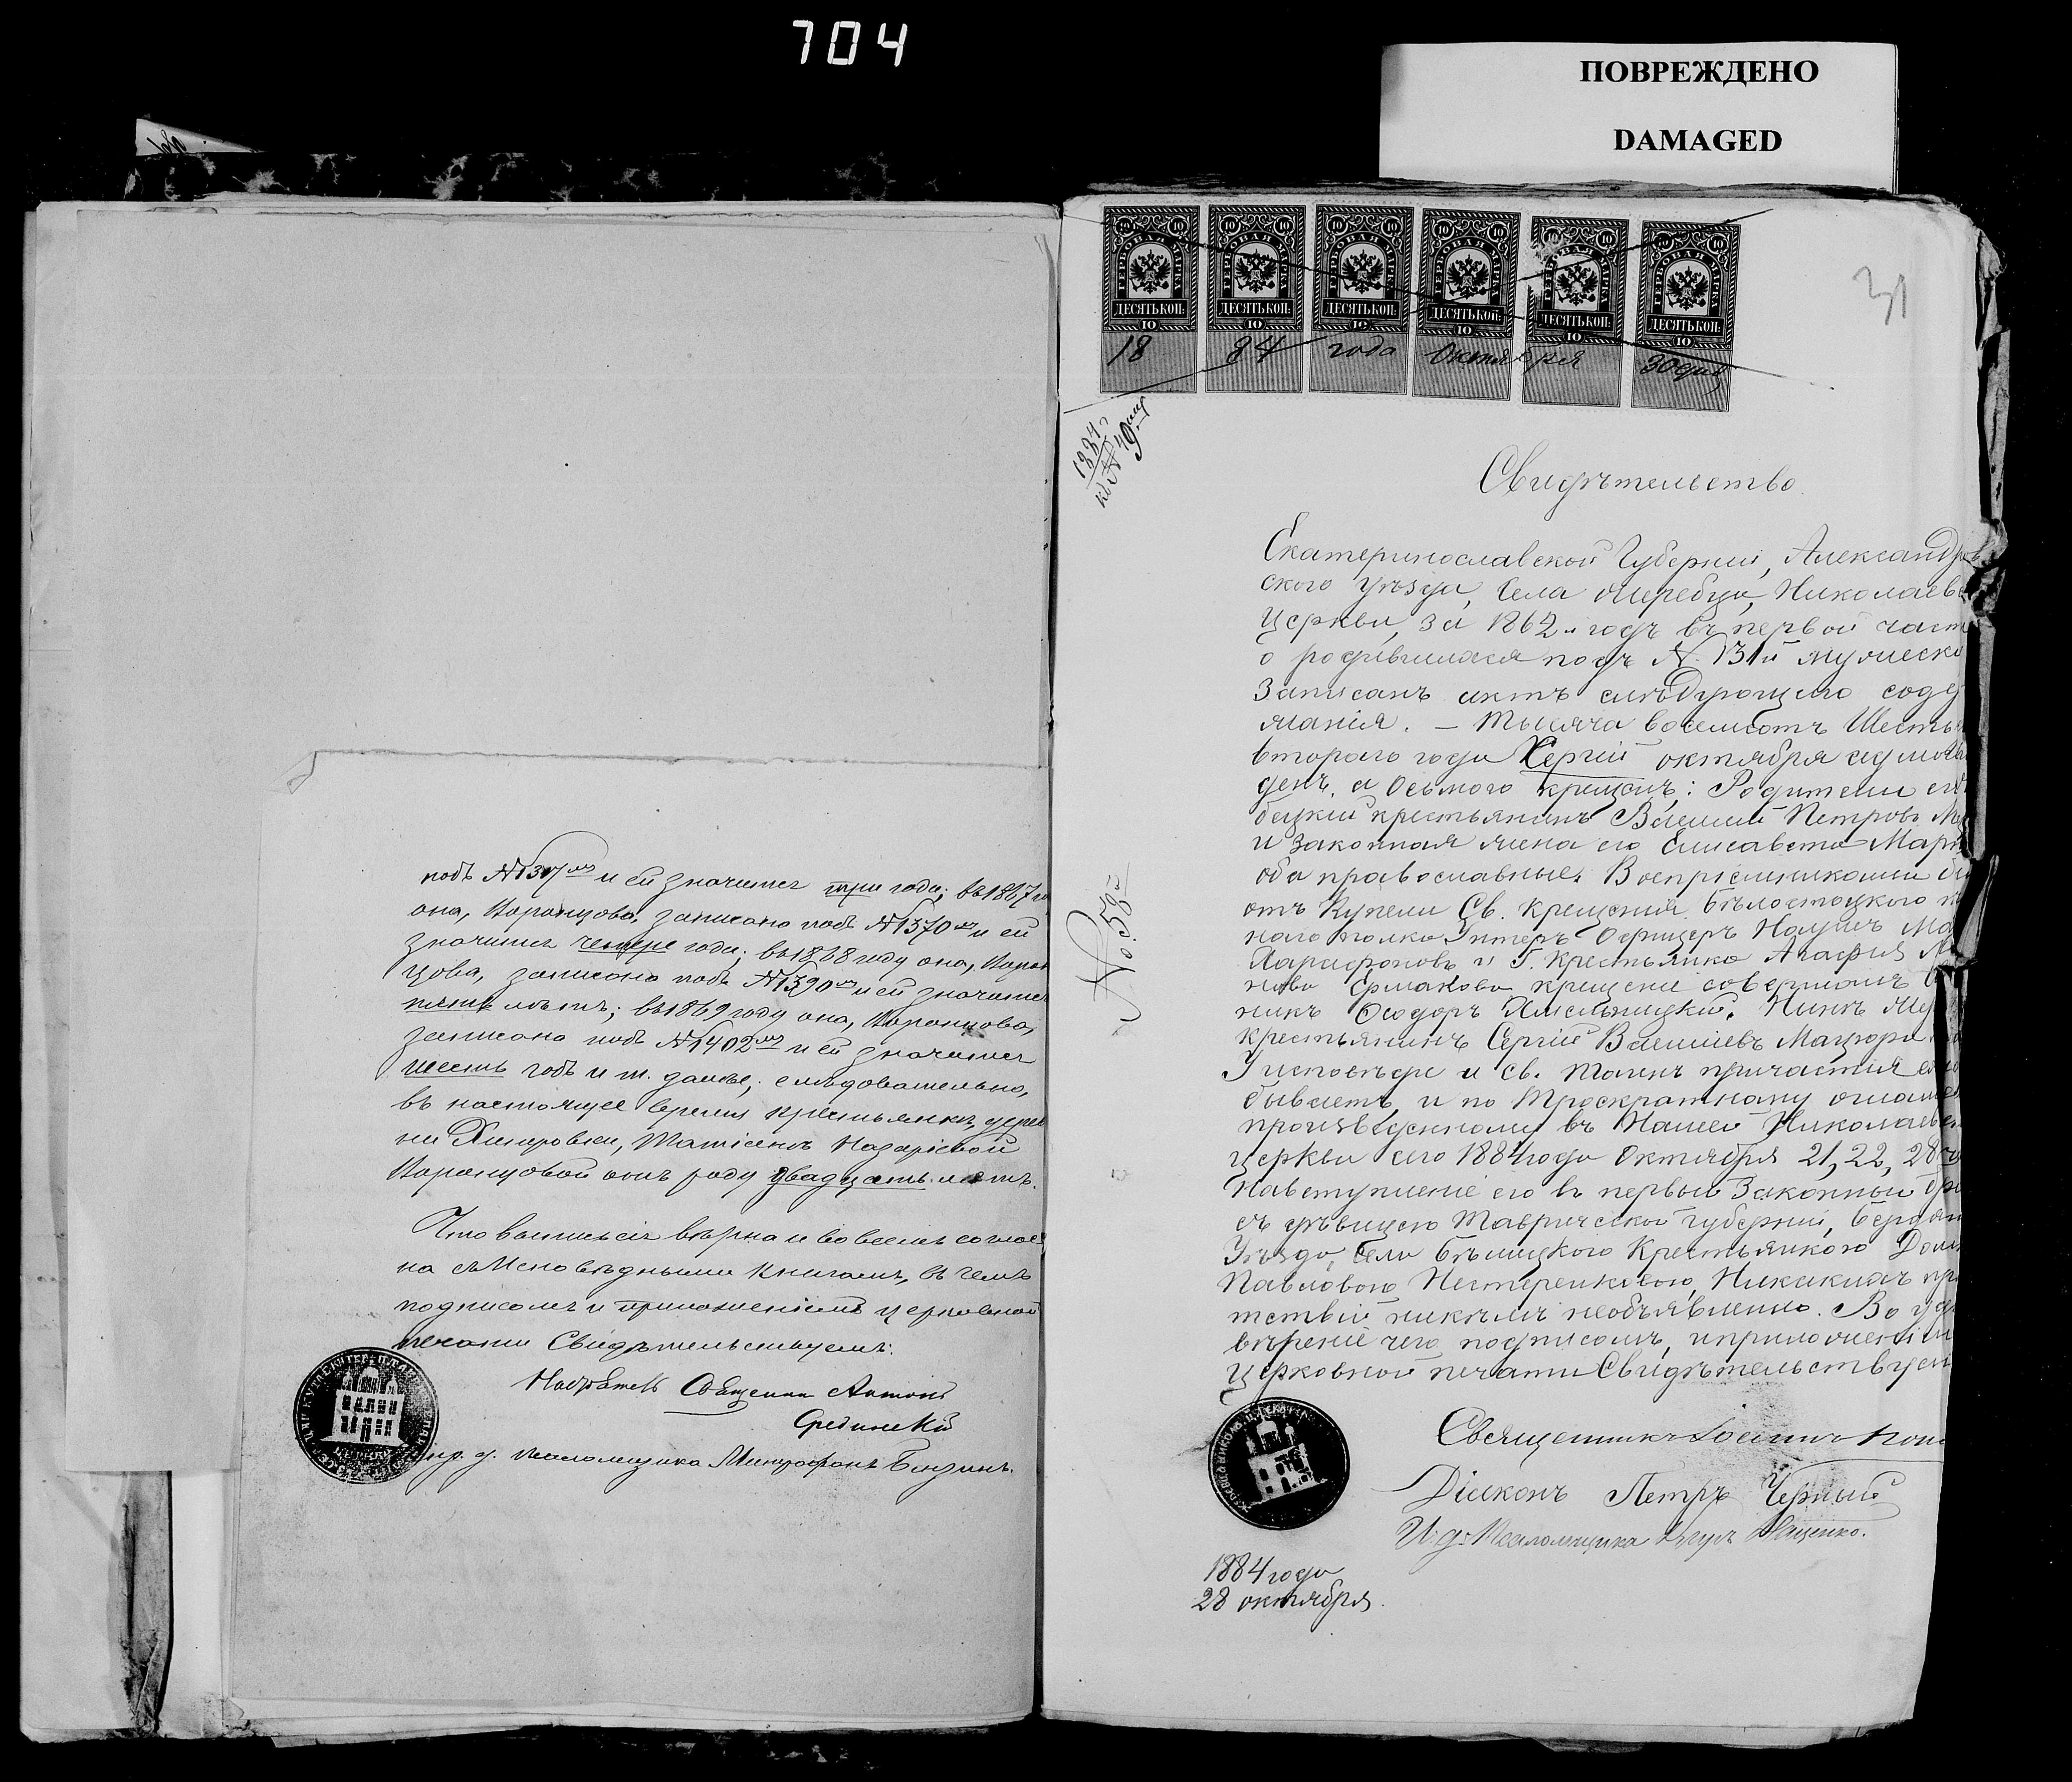 704
ПОВРЕЖДЕНО
DAMAGED
подъ № 1307мъ и ей значится три года; въ 1867 го
она, Воронцова, записана подъ № 1370мъ и ей
значится четыре года; въ 1868 году она, Ворон
цова, записана подъ № 1390мъ и ей значится
пять лѣтъ; въ 1869 году она, Воронцова,
записана подъ № 1402мъ и ей значится
шесть годъ и т. далѣе; слѣдовательно,
въ настоящее время крестьянкѣ дерев
ни, Татіанѣ Назаріевой
Воронцовой отъ роду двадцать лѣтъ.
Что выпись сія вѣрна и во всемъ соглас
на съ Исповѣдными книгами, въ чемъ
подписомъ и приложеніемъ церковной
печати Свидѣтельствуемъ:
Священник Антоній
Срединскій
Ипр. д. псаломщика Митрофанъ
31
ГЕРБОВАЯ МАРКА ДЕСЯТЬ КОП: 10
ГЕРБОВАЯ МАРКА ДЕСЯТЬ КОП: 10
ГЕРБОВАЯ МАРКА ДЕСЯТЬ КОП: 10
ГЕРБОВАЯ МАРКА ДЕСЯТЬ КОП: 10
ГЕРБОВАЯ МАРКА ДЕСЯТЬ КОП: 10
ГЕРБОВАЯ МАРКА ДЕСЯТЬ КОП: 10
18 84 года Октября 30 дня
1884
Свидѣтельство
Екатеринославской Губерніи, Александров
ского уѣзда, Села Жеребца, Николаевс
Церкви, за 1862й годъ въ первой част
о родившихся подъ №. 131й мужеско
Записанъ актъ слѣдующего содер
жанія. – Тысяча восемсотъ Шестьд
второго года Сергій октября седмова
денъ, а Осьмого крещенъ: Родители его
бецкій крестьянинъ Василій Петровъ Ма
и законная жена его Елисавета Март
оба православные. Воспріемниками бы
отъ Купели Св. Крещенія Бѣлостоцкого п
наго полка Унтеръ Офицеръ Наумъ Ма
Парафоновъ и Г. Крестьянка Агафія
нова Ермакова крещеніе совершалъ С
никъ Феодоръ Хмельницкій. Нынѣ Же
крестьянинъ Сергій Василіевъ Мацюра
У исповѣди и св. Таинъ причастія еже
бываетъ, и по Троекратному оглаше
произведенному въ Нашей Николаевс
церкви сего 1884 года Октября 21, 22, 28го
Навступленіе его въ первый Законный бра
съ дѣвицею Таврической Губерніи, Бердян
Уѣзда, Села Бѣлицкого Крестьянкою Домн
Павловою Нестеренковою, Никакихъ пре
тствій никѣмъ необъявленно. Во удо
вѣреніе чего подписомъ, и приложеніем
Церковной печати Свидѣтельствуем
Священникъ Іоаннъ Поп
Діяконъ Петръ Черный
И. д. Псаломщика Ященко.
1884 года
28 октября.
No. 59й